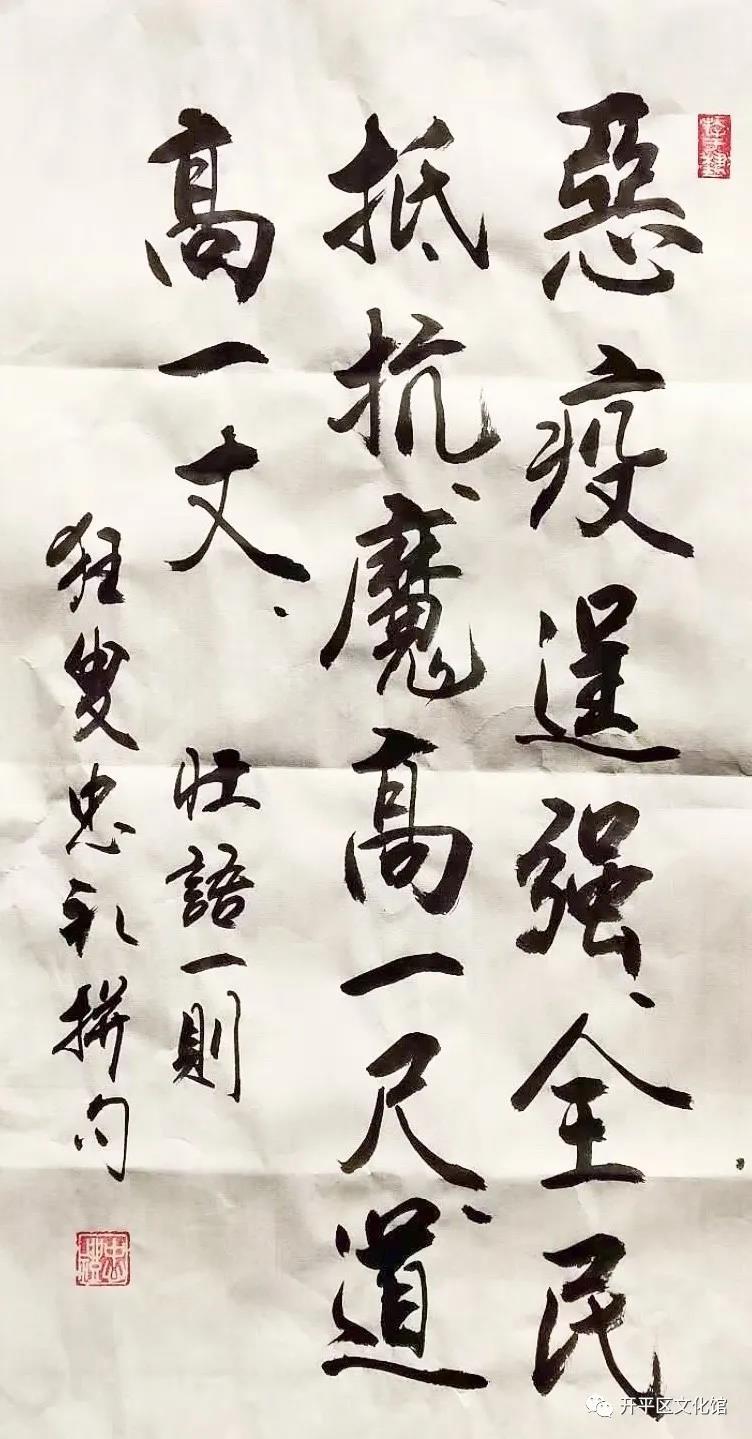 惡疫逞强、全民
抵抗、魔高一尺、道
高一丈、
壮語一則
狂叟忠礼拼句
忠禮
开平区文化馆